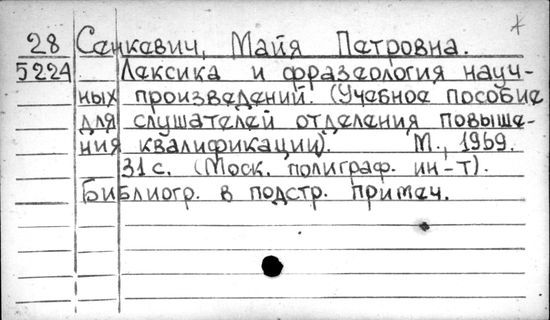 28 Сенкевич, Майя Петровна.
5224 Лексика и фразеология науч-
ных произведений. (Учебное пособие
для слушателей отделения повыше-
ния квалификации). М., 1969.
31 с. (Моск. полиграф. ин-т).
Библиогр. в подстр. примеч.